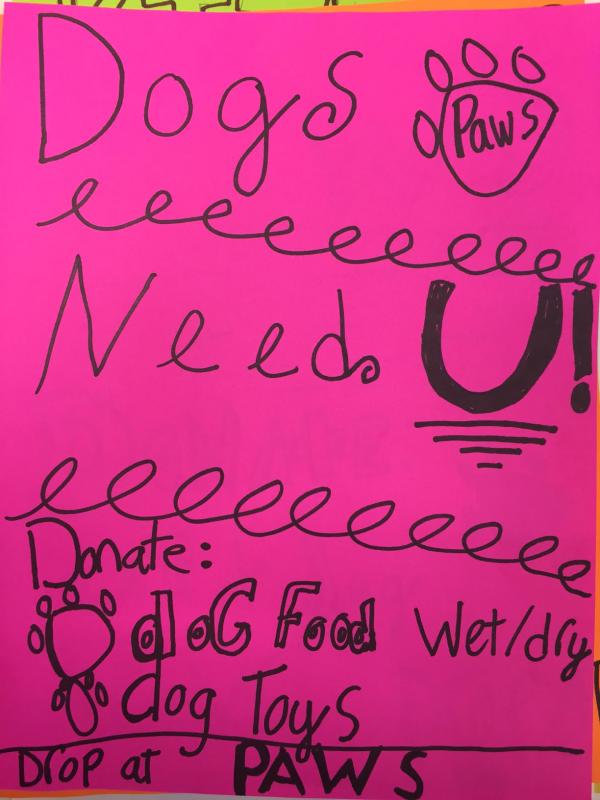 Dogs
Paws
Needs U!
Donate:
doG Food Wet/dry
dog Toys
Drop at PAWS